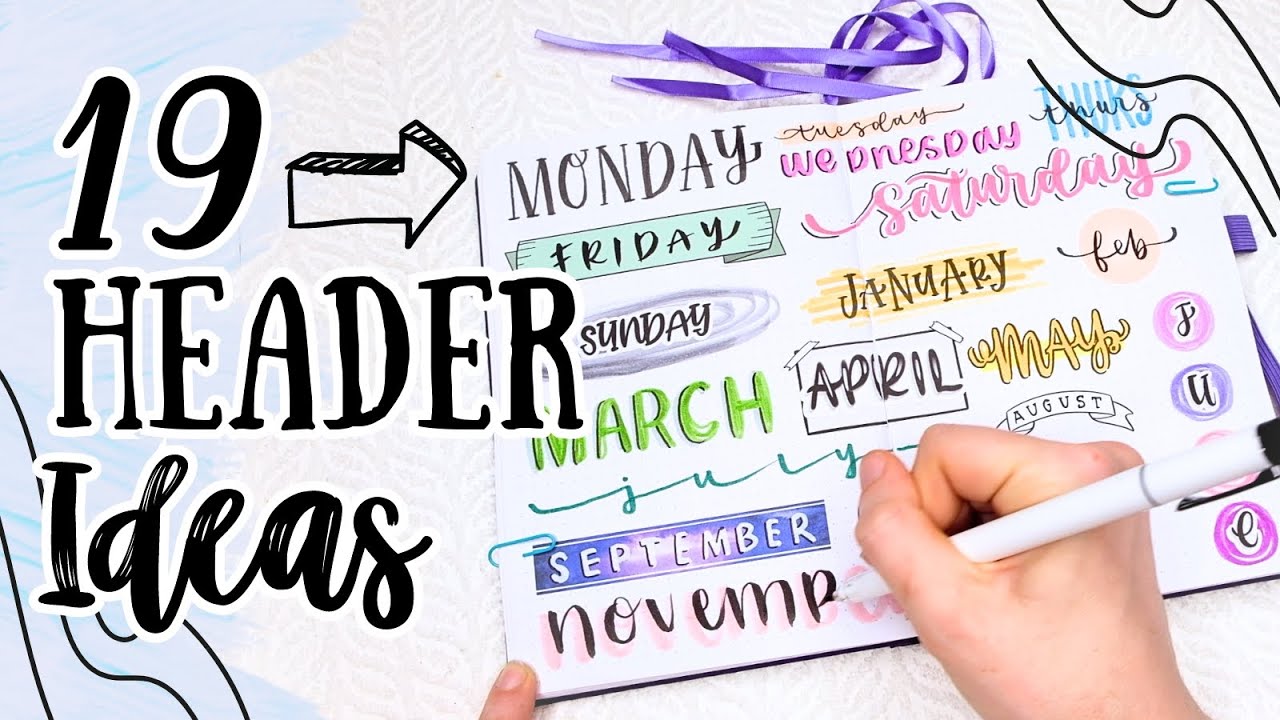 19
HEADER
Ideas
MONDAY
tuesday
WEDNESDAY
THURS
thurs
FRIDAY
saturday
SUNDAY
JANUARY
feb
MARCH
APRIL
MAY
AUGUST
july
SEPTEMBER
novemb
J
U
E